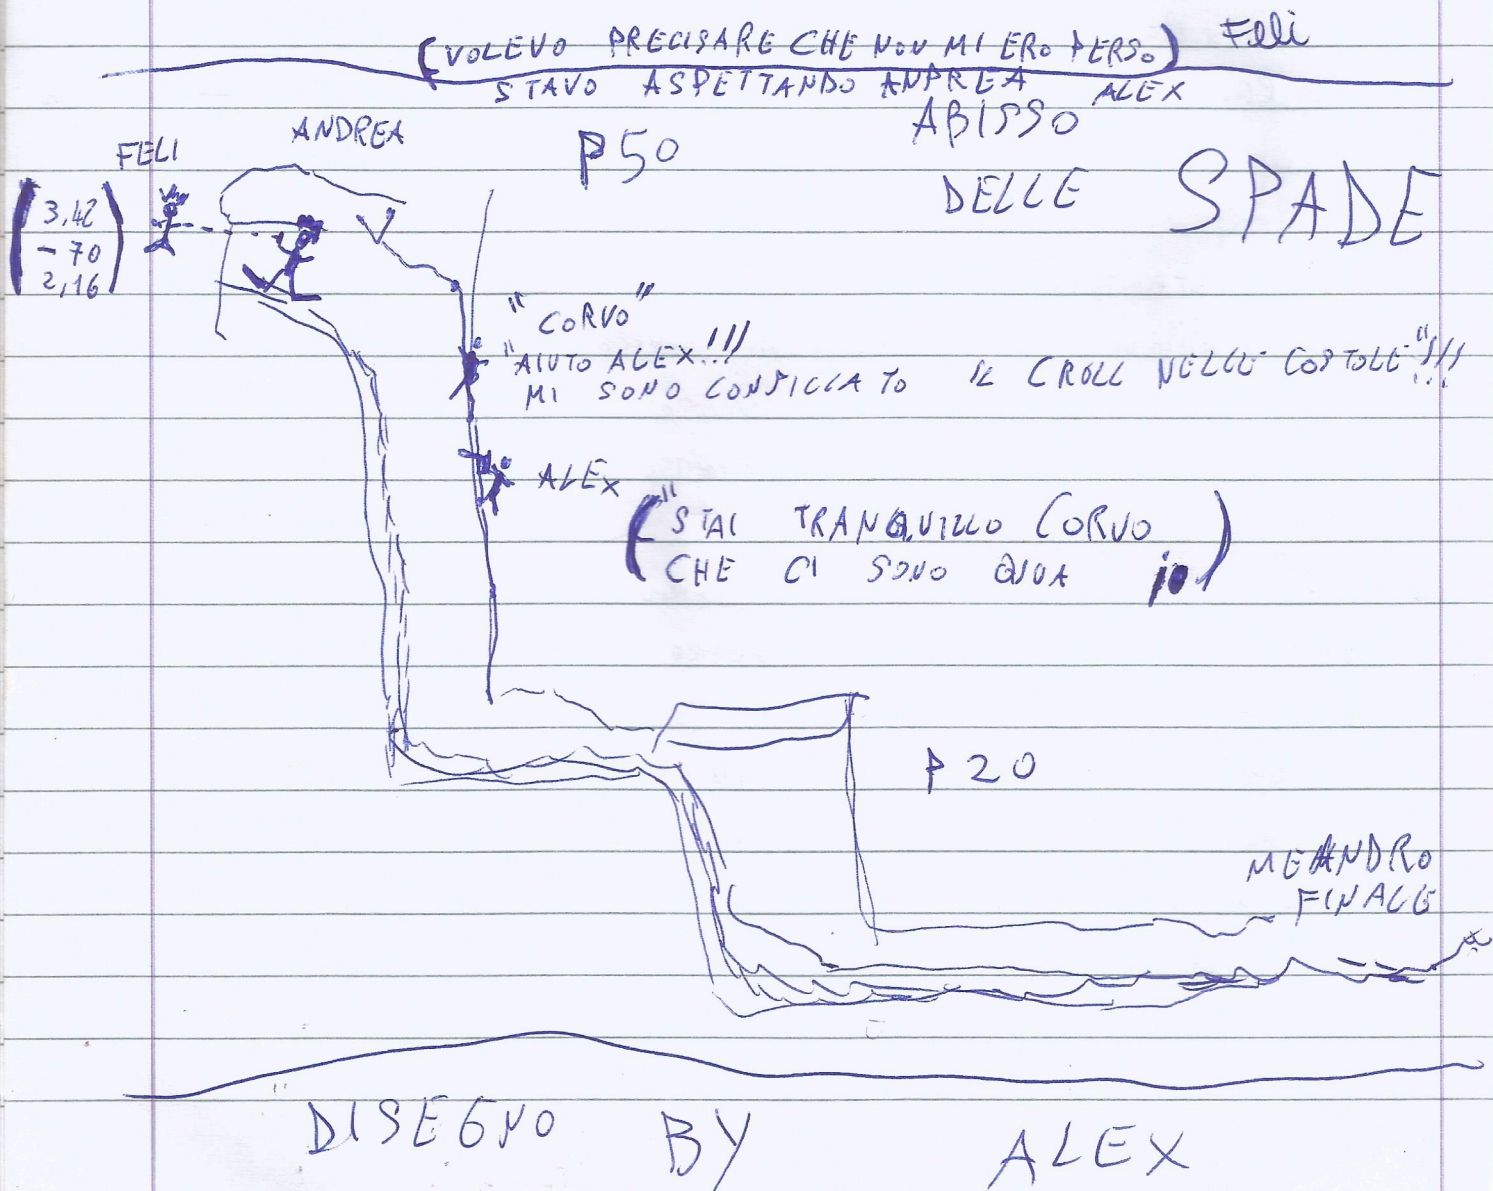 (VOLEVO PRECISARE CHE NON MI ERO PERSO) Feli
STAVO ASPETTANDO ANDREA ALEX
ABISSO
DELLE SPADE
ANDREA
P50
FELI
3,42
-70
2,16
"CORVO"
"AIUTO ALEX!!!
MI SONO CONFICCATO IL CROLL NELLE COSTOLE"!!!
ALEX
("STAI TRANQUILLO CORVO
CHE CI SONO QUUA io)
P20
MEANDRO
FINALE
DISEGNO BY ALEX